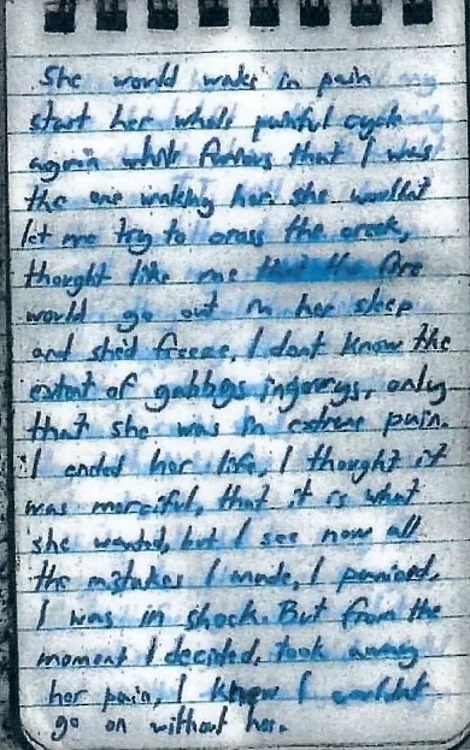 She would wake in pain
start her whole painful cycle
again while furious that I was
the one waking her. she wouldnt
let me try to cross the creek,
thought like me that the fire
would go out in her sleep
and she'd freeze. I dont know the
extent of gabbys ingurys, only
that she was in extreme pain.
I ended her life, I thought it
was merciful, that it is what
she wanted, but I see now all
the mistakes I made. I panicked,
I was in shock. But from the
moment I decided, took away
her pain, I knew I wouldnt
go on without her.